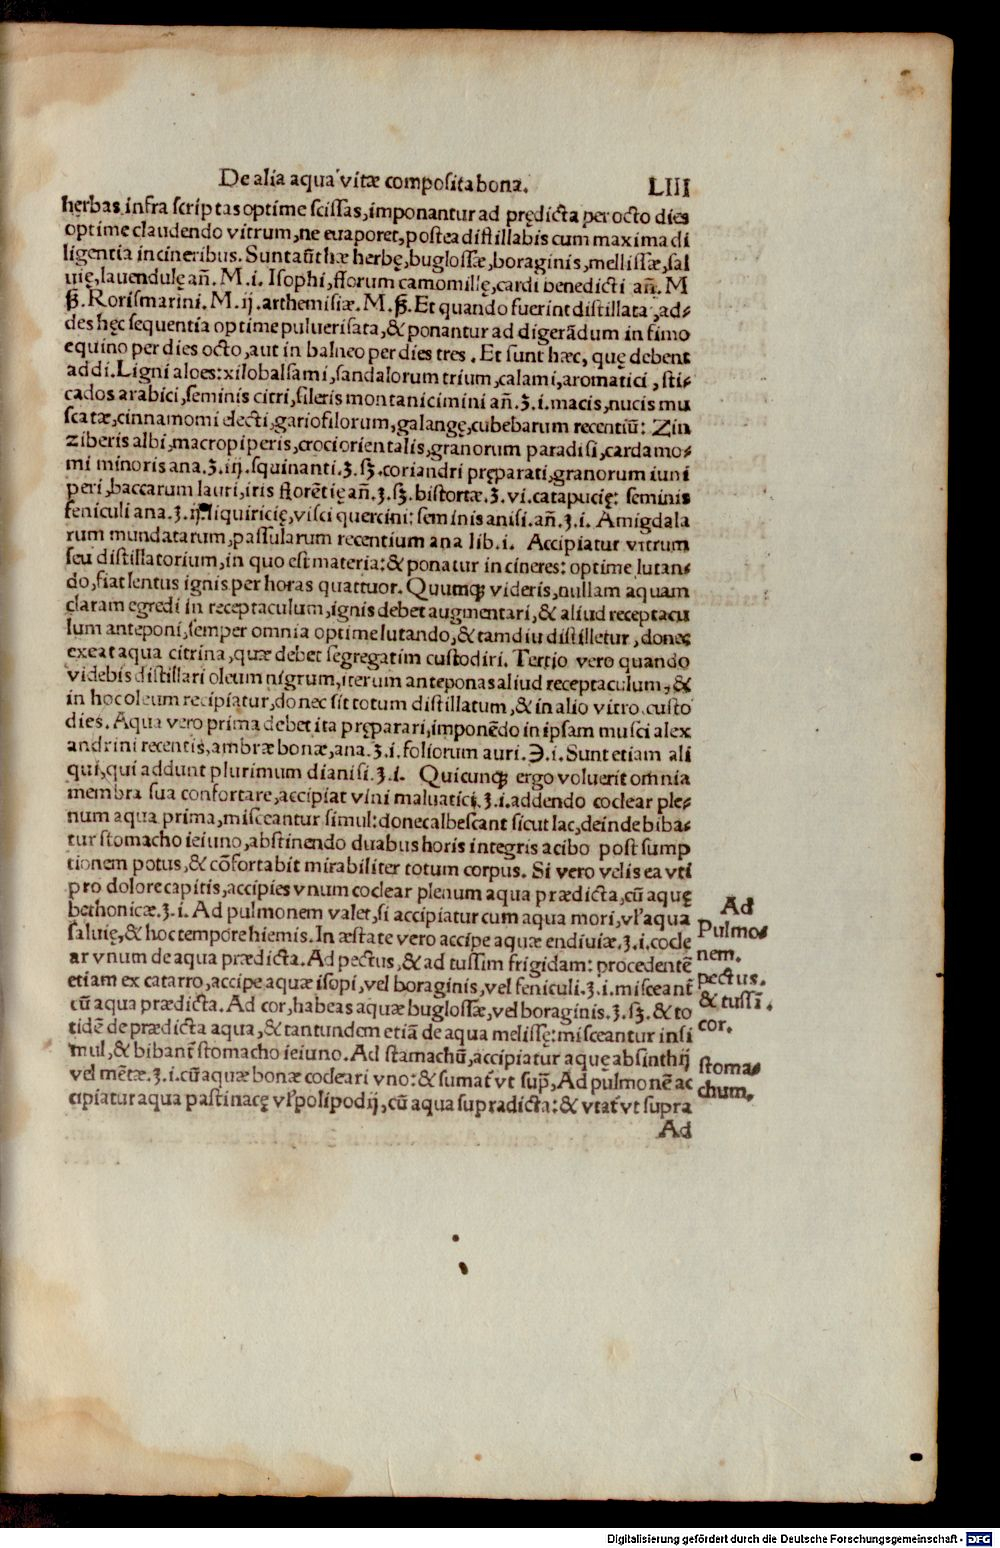 De alia aqua vitæ composita bona.
LIII
herbas infra scriptas optime scissas, imponantur ad prędicta per octo dies
optime claudendo vitrum, ne euaporet, postea distillabis cum maxima di
ligentia in cineribus. Sunt aūt hæ herbę, buglossæ, boraginis, mellissæ, sal
uię, lauendulę añ. M. i. Isophi, fforum camomillę, cardi benedicti añ. M
ß. Rorismarini. M. ij. arthemisiæ. M. ß. Et quando fuerint distillata, ad⸗
des hęc sequentia optime puluerisata, & ponantur ad digerādum in fimo
equino per dies octo, aut in balneo per dies tres. Et sunt hæc, quę debent
addi. Ligni aloes: xilobalsami, sandalorum trium, calami, aromatici, sti⸗
cados arabici, seminis citri, sileris montani cimini añ. ʒ. i. macis, nucis mu
scatæ, cinnamomi electi, gariofilorum, galangę, cubebarum recentiū: Zin
ziberis albi, macropiperis, croci orientalis, granorum paradisi, cardamo⸗
mi minoris ana. ʒ. iij. squinanti. ʒ. ß. coriandri pręparati, granorum iuni
peri, baccarum lauri, iris florētię añ. ʒ. ß. bistortæ. ʒ. vi. catapucię: seminis
feniculi ana. ʒ. ij. liquiricię, visci quercini: seminis anisi. añ. ʒ. i. Amigdala
rum mundatarum, passularum recentium ana lib. i. Accipiatur vitrum
seu distillatorium, in quo est materia: & ponatur in cineres: optime lutan⸗
do, fiat lentus ignis per horas quattuor. Quumqꝫ videris, nullam aquam
claram egredi in receptaculum, ignis debet augmentari, & aliud receptacu
lum anteponi, semper omnia optime lutando, & tamdiu distilletur, donec
exeat aqua citrina, quæ debet segregatim custodiri. Tertio vero quando
videbis distillari oleum nigrum, iterum anteponas aliud receptaculum, &
in hoc oleum recipiatur, donec sit totum distillatum, & in alio vitro custo
dies. Aqua vero prima debet ita pręparari, imponēdo in ipsam musci alex
andrini recentis, ambræ bonæ, ana. ʒ. i. foliorum auri. ℈. i. Sunt etiam ali
qui, qui addunt plurimum dianisi. ʒ. i. Quicunqꝫ ergo voluerit omnia
membra sua confortare, accipiat vini maluatici. ʒ. i. addendo coclear ple⸗
num aqua prima, misceantur simul: donec albescant sicut lac, deinde biba⸗
tur stomacho ieiuno, abstinendo duabus horis integris a cibo post sump
tionem potus, & cōfortabit mirabiliter totum corpus. Si vero velis ea vti
pro dolore capitis, accipies vnum coclear plenum aqua prædicta, cū aquę
bethonicæ. ʒ. i. Ad pulmonem valet, si accipiatur cum aqua mori, vł aqua
saluię, & hoc tempore hiemis. In æstate vero accipe aquæ endiuiæ. ʒ. i. cocle
ar vnum de aqua prædicta. Ad pectus, & ad tussim frigidam: procedentē
etiam ex catarro, accipe aquæ isopi, vel boraginis, vel feniculi. ʒ. i. misceant̄
cū aqua prædicta. Ad cor, habeas aquæ buglossæ, vel boraginis. ʒ. ß. & to
tidē de prædicta aqua, & tantundem etiā de aqua melissę: misceantur insi
mul, & bibant̄ stomacho ieiuno. Ad stamachū, accipiatur aquę absinthij
vel mētæ. ʒ. i. cū aquæ bonæ cocleari vno: & sumat̄ vt sup̄, Ad pulmonē ac
cipiatur aqua pastinacę vł polipodij, cū aqua supradicta: & vtat̄ vt supra
Ad
Ad
Pulmo⸗
nem.
pectus.
& tussī.
cor.
stoma⸗
chum.
Digitalisierung gefördert durch die Deutsche Forschungsgemeinschaft - DFG